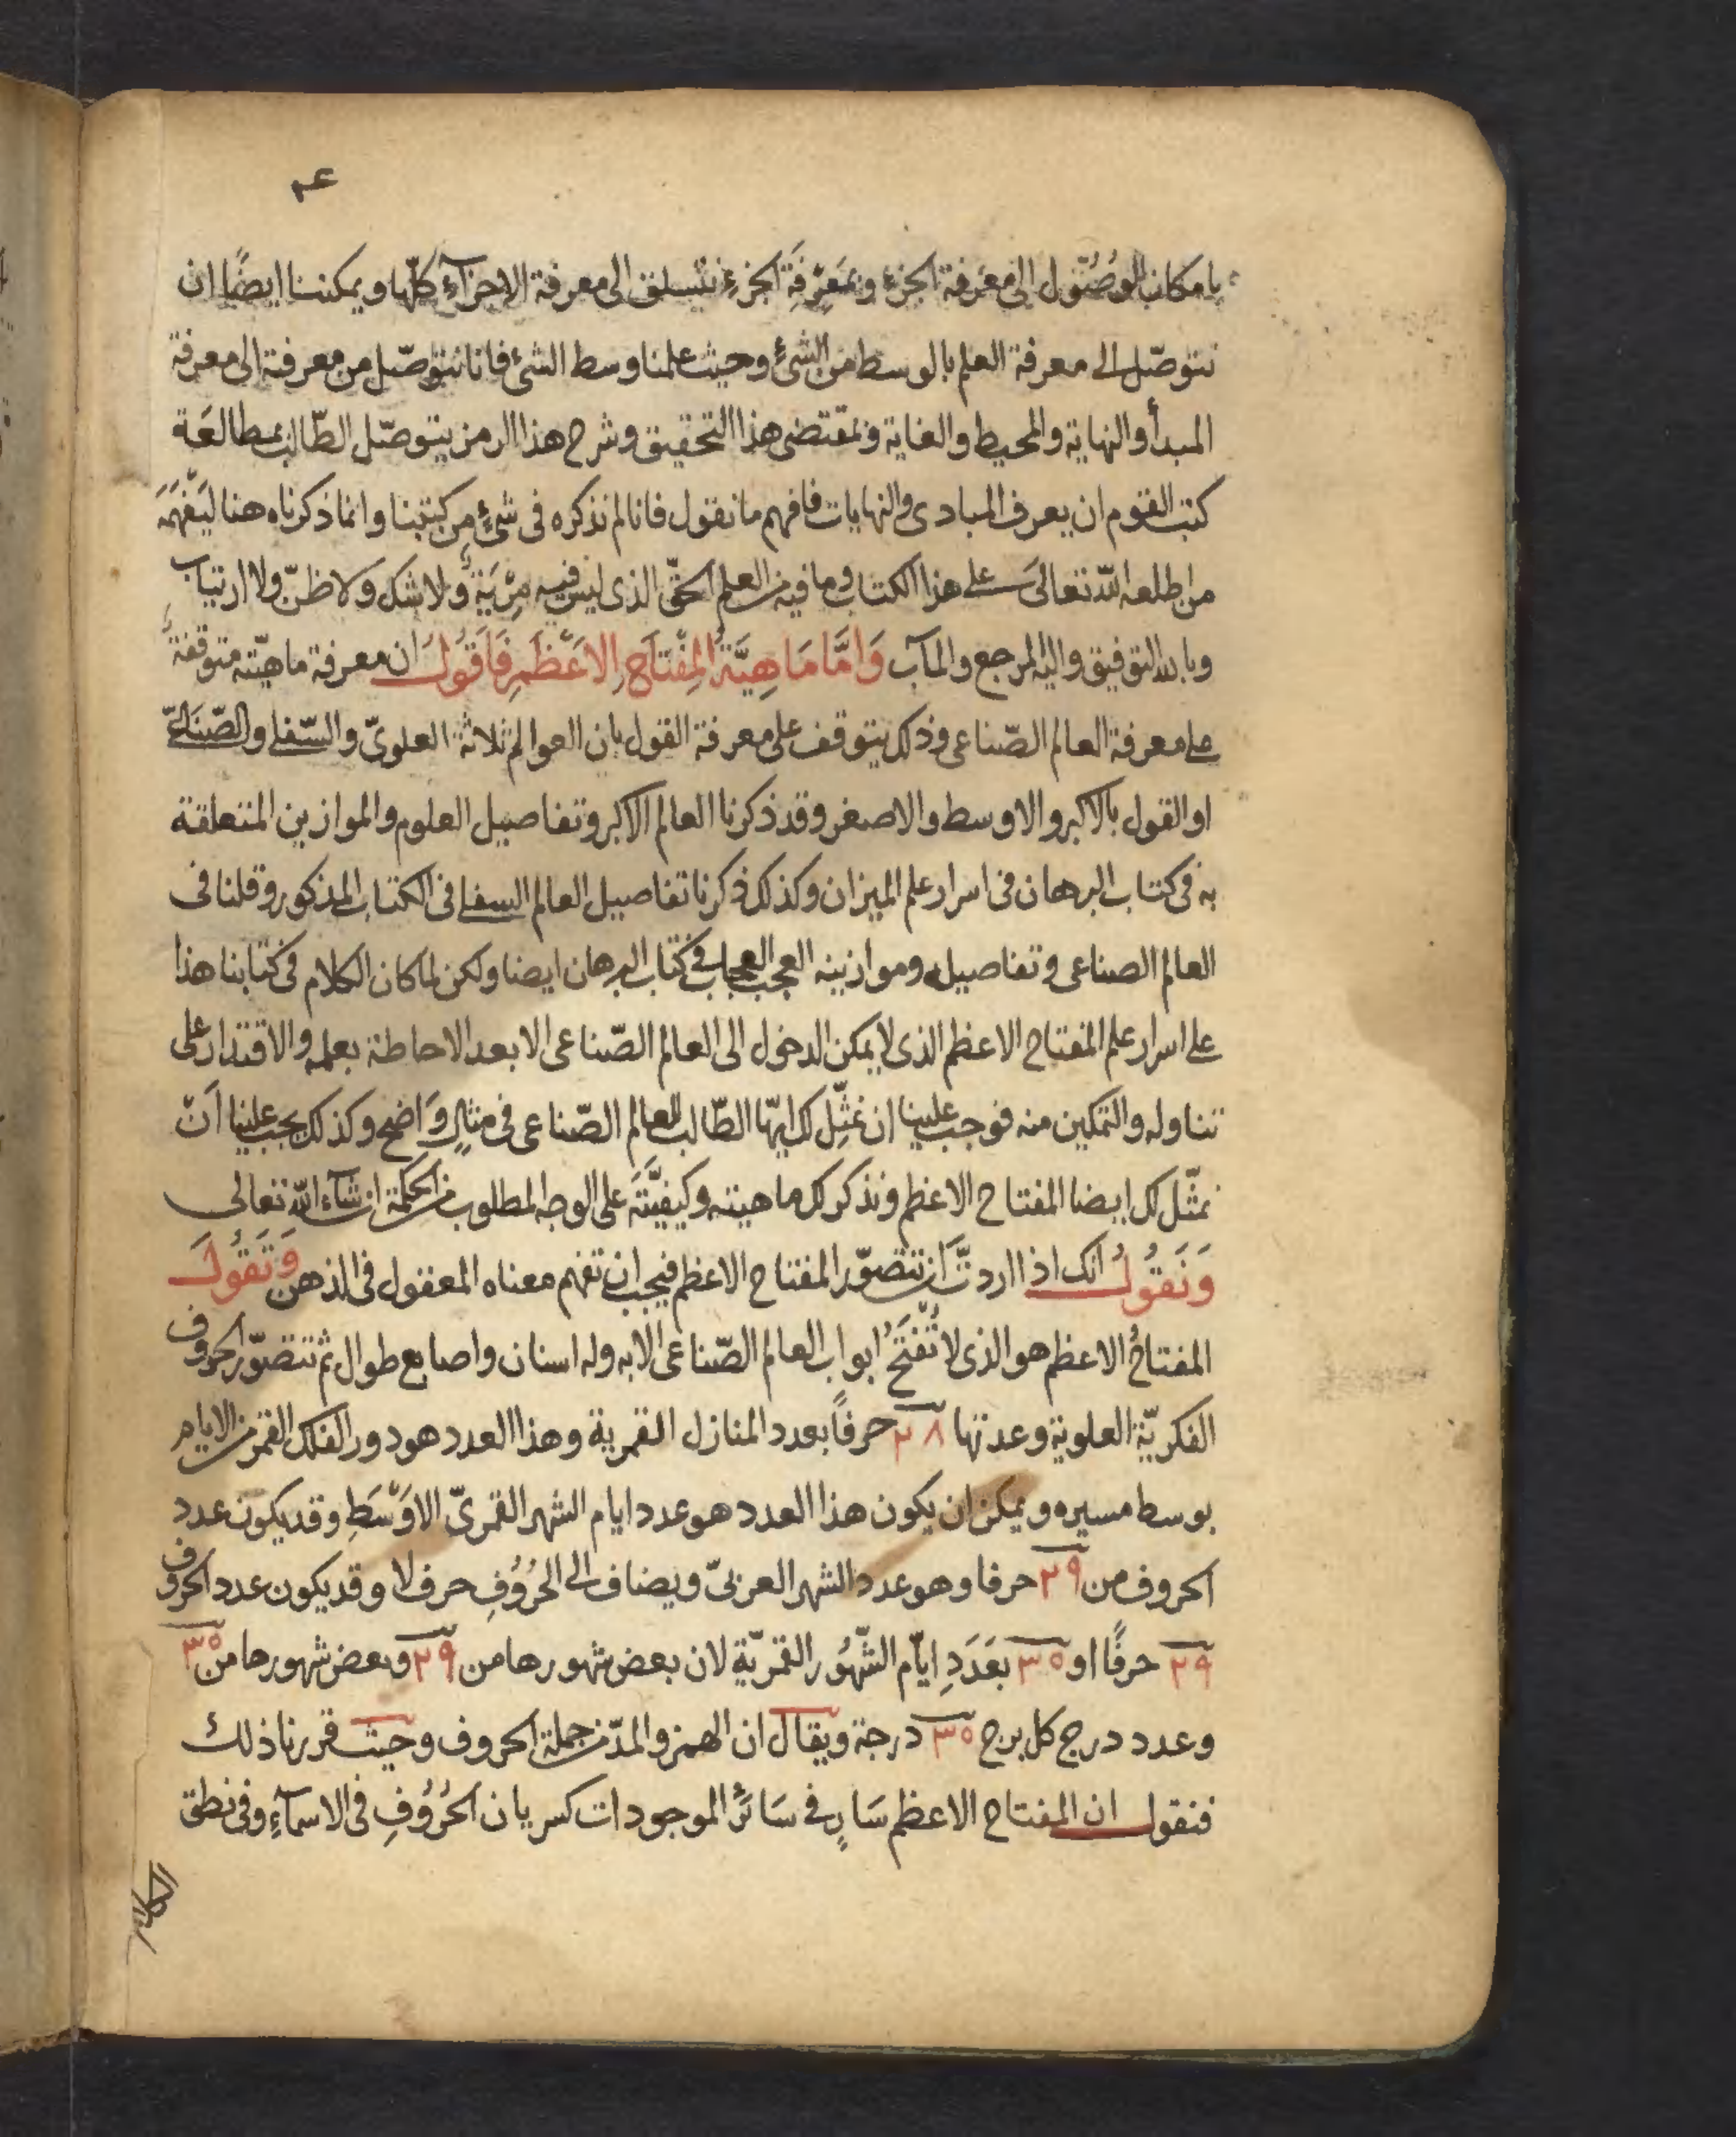 بامكان الوُصُول الى معرفة الجزء وبمَعِرفَة الجزء نتسلق الى معرفة الاجزآء كلّها ويمكننا ايضًا ان
نتوصّل الى معرفة العلم بالوسط من الشئ وحيث علمنا وسط الشئ فانا نتوصّل من معرفته الى معرفة
المبدأ والنهاية والمحيط والغاية وبمقتضى هذا التحقيق وشرح هذا الرمز يتوصّل الطّالب بمطالعَة
كتب القوم ان يعرف المبادى والنهايات فافهم ما نقول فانا لم نذكره فى شئٍ من كتبنا وانما ذكرناه هنا ليَفْهَمَهَ
من اطلعه اللّه تعالىَ على هذا الكتاب وما فيه من العلم الحقّ الذى ليس فيه مِرْيَةٌ ولا شك ولا ظنّ ولا ارتياب
وبالله التوفيق واليه المرجع والمآب وَامَّا مَاهِيَّةُ المِفْتَاحِ الاَعْظَمِ فَاَقُولُ ان معرفة ماهيّته متوقفةٌ
على معرفة العالم الصّناعى وذلك يتوقف على معرفة القول بان العوالم ثلاثة العلوىّ والسّفلى والصّنَاعىّ
او القول بالاكبر والاوسط والاصغر وقد ذكرنا العالم الاكبر وتفاصيل العلوم والموازين المتعلقة
به فى كتاب البرهان فى اسرار علم الميزان وكذلك ذكرنا تفاصيل العالم السفلى فى الكتاب المذكور وقلنا فى
العالم الصناعى وتفاصيله وموازينه العجب العجاب فى كتاب البرهان ايضا ولكن لما كان الكلام فى كتابنا هذا
على اسرار علم المفتاح الاعظم الذى لا يمكن الدخول الى العالم الصّناعى الا بعد الاحاطة بعلمه والاقتدار على
تناوله والتمكين منه فوجب علينا ان نمثّل لك ايّها الطّالب للعالم الصّناعى فى مثالٍ وَاضحٍ وكذلك يجب علينا اَنْ
نمثّل لك ايضا المفتاح الاعظم ونذكر لك ماهيته وكيفيّتَهَ على الوجه المطلوب من الحكمة ان شآء اللّه تعالى
وَنَقُولُ انك اذا اردتّ اَن تتصوّر المفتاح الاعظم فيجب ان تفهم معناه المعقول فى الذهن وَتَقُولَ
المفتاحُ الاعظم هو الذى لا تُفْتَحُ ابواب العالم الصّناعى الا به وله اسنان واصابع طوال ثم تتصوّر الحروف
الفكريّة العلوية وعدتها ٢٨ حرفاً بعدد المنازل القمرية وهذا العدد هو دور الفلك القمر من الايام
بوسط مسيره ويمكن ان يكون هذا العدد هو عدد ايام الشهر القمرىّ الاوْسَطِ وقد يكون عدد
الحروف من ٢٩ حرفا وهو عدد الشهر العربىّ ويضاف الى الحُرُوُفِ حرف لا وقد يكون عدد الحروف
٢٩ حرفًا او ٣٥ بعَدَدِ ايّام الشّهُور القمريّة لان بعض شهورها من ٢٩ وبعض شهورها من ٣٥
وعدد درج كل برج ٣٥ درجة ويقال ان الهمز والمدّ من جملة الحروف وحيث قررنا ذلك
فنقول ان المفتاح الاعظم سَارٍ فى سَائر الموجودات كسريان الحُرُوُفِ فى الاسمآءِ وفى نطق
الكلام